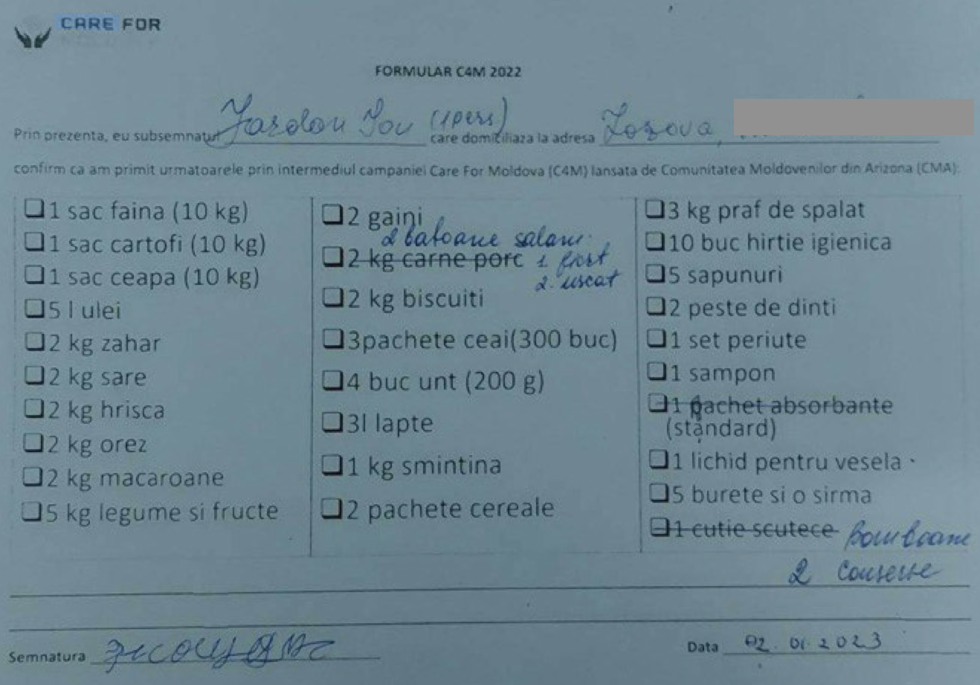 CARE FOR
FORMULAR C4M 2022
Prin prezenta, eu subsemnatul Iov (1 pers) care domiciliaza la adresa Lozova,
confirm ca am primit urmatoarele prin intermediul campaniei Care For Moldova (C4M) lansata de Comunitatea Moldovenilor din Arizona (CMA):
❑1 sac faina (10 kg)
❑1 sac cartofi (10 kg)
❑1 sac ceapa (10 kg)
❑5 l ulei
❑2 kg zahar
❑2 kg sare
❑2 kg hrisca
❑2 kg orez
❑2 kg macaroane
❑5 kg legume si fructe
❑2 gaini
2 batoane salam:
❑2 kg carne porc 1 fiert
2. uscat
❑2 kg biscuiti
❑3pachete ceai(300 buc)
❑4 buc unt (200 g)
❑3l lapte
❑1 kg smintina
❑2 pachete cereale
❑3 kg praf de spalat
❑10 buc hirtie igienica
❑5 sapunuri
❑2 peste de dinti
❑1 set periute
❑1 sampon
❑1 pachet absorbante
(standard)
❑1 lichid pentru vesela
❑5 burete si o sirma
❑1 cutie scutece Bomboane
2 conserve
Semnatura
Data 02.01.2023